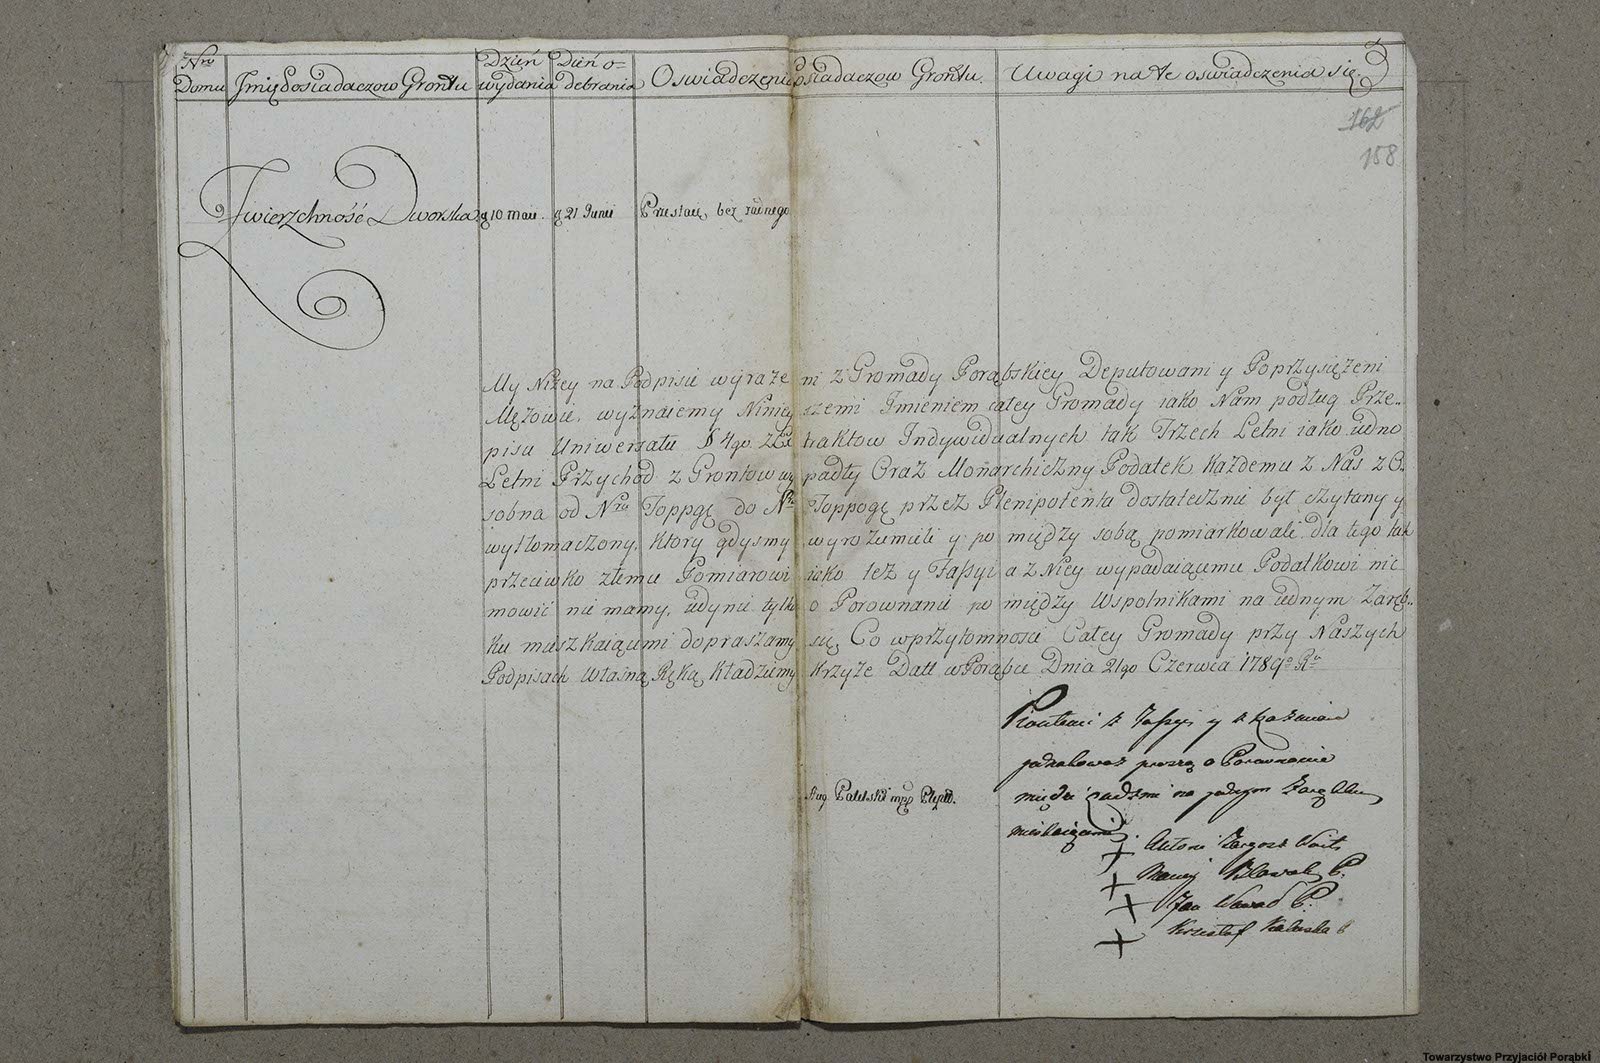 Nro Domu
Jmię Posiadaczow Grontu
Dzień wydania
Dień odebrania
Oswiadczenie Posiadaczow Grontu.
Uwagi na te oswiadczenia się
3
162
158
Zwierzchność Dworska
g 10 Maii.
g 21 Junii
Przestaię bez żadnego
My Niżey na Podpisie wyrażeni z Gromady Porąbskiey Deputowani y Poprzysiężeni
Mężowie, wyznaiemy Ninieyszemi Jmieniem całey Gromady iako Nam podług Prze-
pisu Uniwersału § 4go z Extraktow Indywidualnych tak Trzech Letni iako iedno
Letni Przychod z Grontow wypadły Oraz Monarchiczny Podatek każdemu z Nas z O-
sobna od Nro Toppgę do Nro Toppogę przez Plenipotenta dostatecznie był czytany y
wytłomaczony, ktory gdysmy wyrozumieli y po między sobą pomiarkowali, dla tego tak
przeciwko złemu Pomiarowi iako też y Fassyi a z Niey wypadaiącemu Podatkowi nic
mowić nie mamy, iedynie tylko o Porownanie po między Wspolnikami na iednym Zaręb-
ku mieszkaiącemi dopraszamy się, Co w przytomnosci Całey Gromady przy Naszych
Podpisach Własną Ręką kładziemy krzyże Datt w Porąbce Dnia 21go Czerwca 1789o Rr
z Fassyi y z
proszą o Porownanie
na jednym Zarębku
mieskaiącemi
Aug. mpp Plenip.
+ Antoni Woit
+ Maciej P.
+ Jan Wawak P.
+ Krzistof P
Towarzystwo Przyjaciół Porąbki